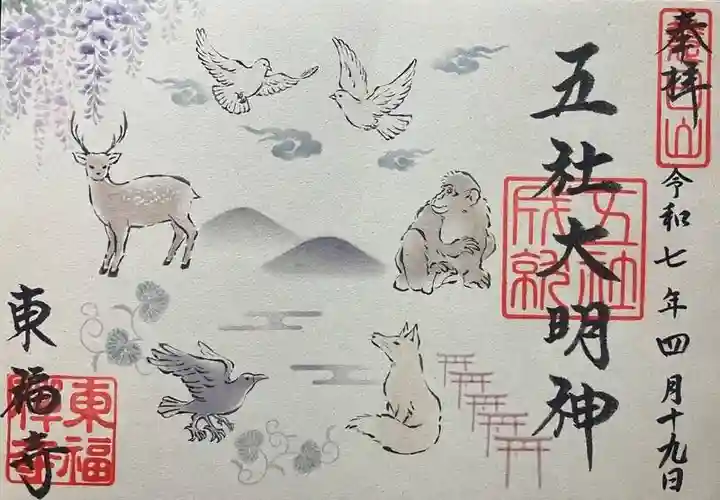 奉拝
令和七年四月十九日
五社大明神
五社
成就
東福寺
東福
禅寺